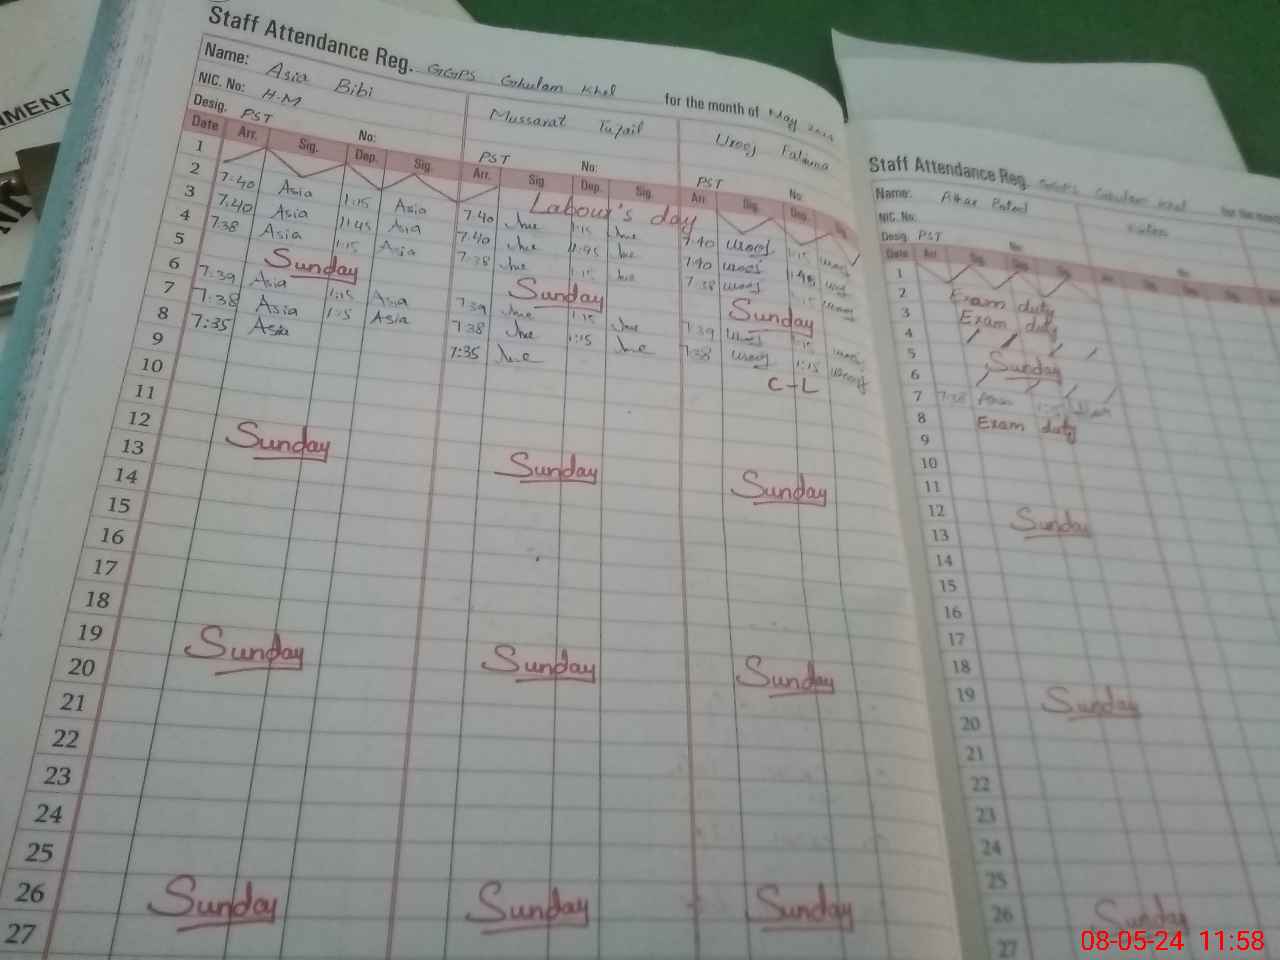 NMENT
Staff Attendance Reg. GGPS Ghulam Khel for the month of May
Name: Asia Bibi Mussarat Tufail Urooj Fatima
NIC. No: H-M
Desig. PST No: PST No: PST No
Date Arr. Sig. Dep. Sig. Arr. Sig Dep. Sig. Arr. Sig. Dep. Sig
1 Labour's day
2 7:40 Asia 1:15 Asia 7:40 1:15 7:40 urooj 1:15 urooj
3 7:40 Asia 11:45 Asia 7:40 11:45 7:40 urooj 11:45
4 7:38 Asia 1:15 Asia 7:38 1:15 7:38 urooj 1:15 urooj
5 Sunday Sunday Sunday
6 7:39 Asia 1:15 Asia 7:39 1:15 7:39 urooj 1:15 urooj
7 7:38 Asia 1:15 Asia 7:38 1:15 7:38 urooj 1:15 urooj
8 7:35 Asia 7:35 C-L
9
10
11
12 Sunday Sunday Sunday
13
14
15
16
17
18
19 Sunday Sunday Sunday
20
21
22
23
24
25
26 Sunday Sunday Sunday
27
Staff Attendance Reg. GGPS Ghulam Khel for the mon
Name:
NIC. No:
Desig. PST No
Date Arr
1
2 Exam duty
3 Exam duty
4
5 Sunday
6
7 7:38 1:15
8 Exam duty
9
10
11
12 Sunday
13
14
15
16
17
18
19 Sunday
20
21
22
23
24
25
26 Sunday
27
08-05-24 11:58